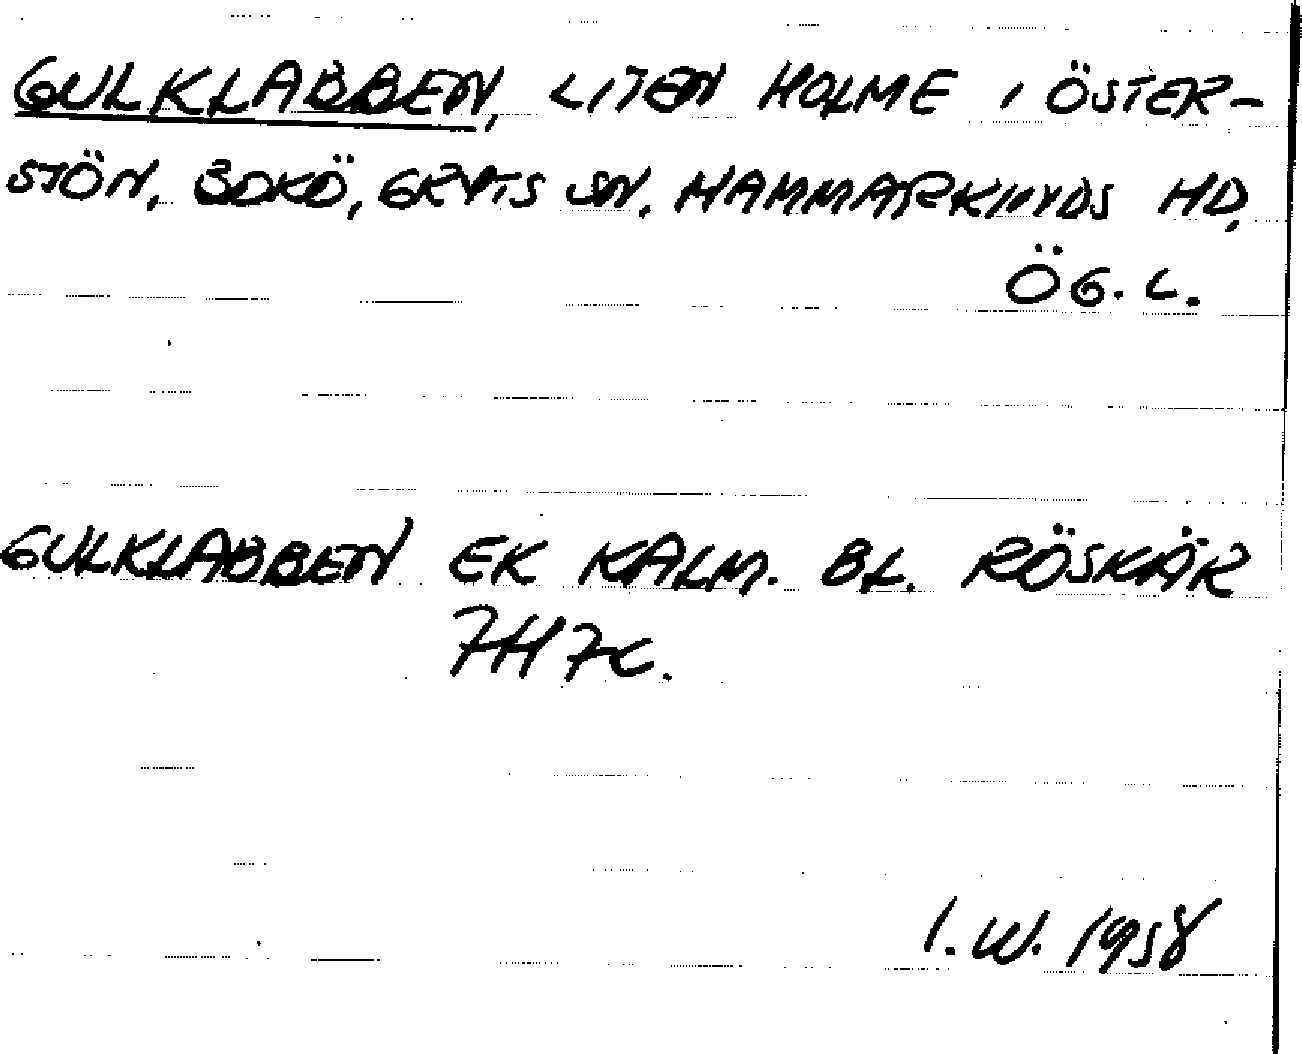 GULKLABBEN, LITEN HOLME I ÖSTER-
STÖN, BOKÖ, GRYTS SN. HAMMARKINDS HD,
ÖG. L.
GULKLABBEN EK KALM. BL. RÖSKÄR
7H7C.
I. W. 1958